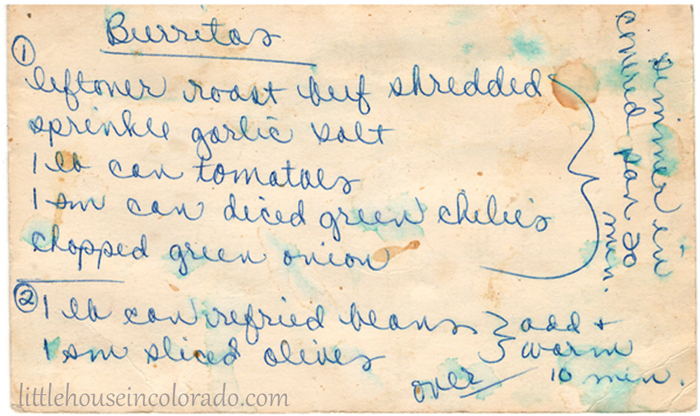 Burritos
① leftover roast beef shredded
sprinkle garlic salt
1 lb can tomatoes
1 sm can diced green chilies
chopped green onion
simmer in
covered pan 20
min.
② 1 lb can refried beans
1 sm sliced olives
add +
warm
10 min.
over
littlehouseincolorado.com